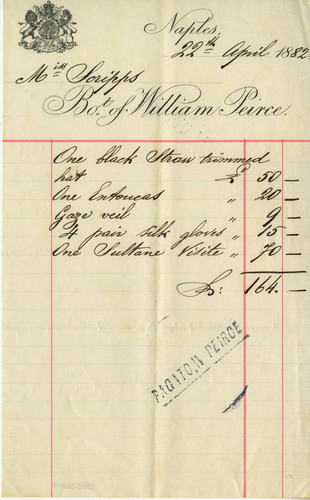 Naples,
22th April 1882
Miss Scripps
Bot. of William Peirce.
One black Straw trimmed
hat £ 50 —
One Entoucas " 20 —
Gaze veil " 9 —
4 pair silk gloves " 15 —
One Sultane Visite " 70 —
164. —
PAGATO, W PEIRCE